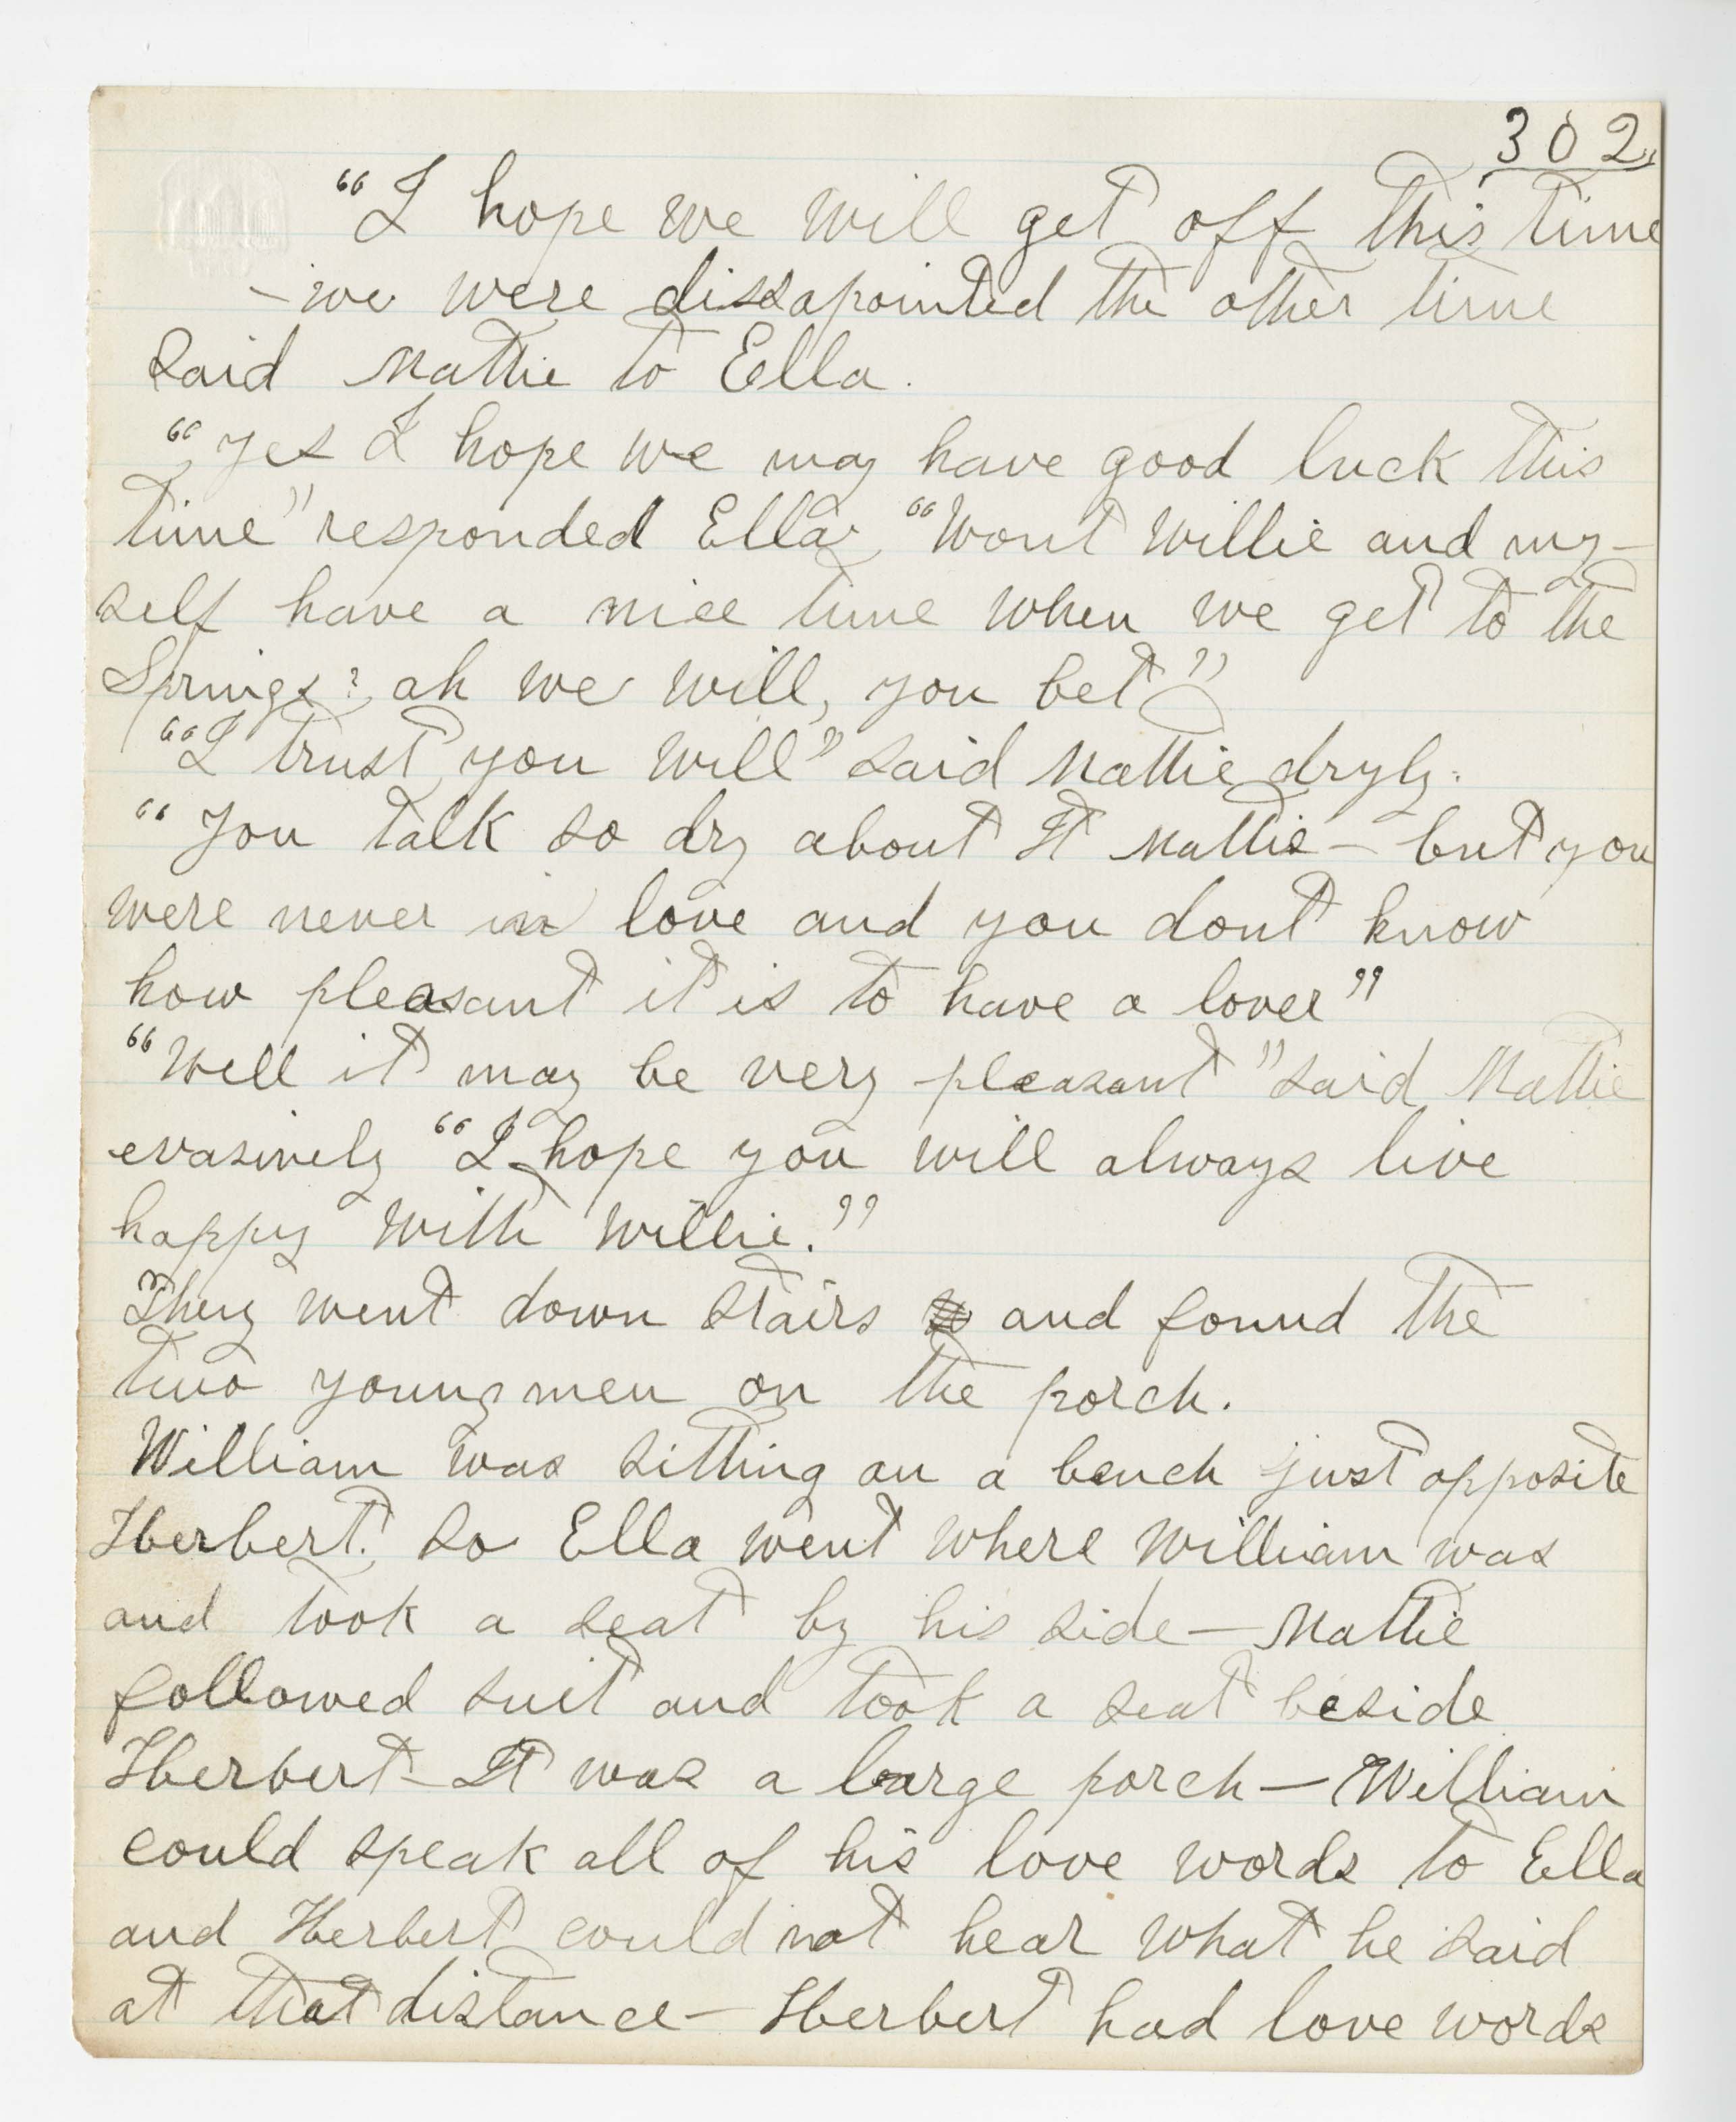 302
"I hope we will get off this time
- we were dissapointed the other time
said Mattie to Ella.
"Yes I hope we may have good luck this
time" responded Ella "Wont Willie and my-
self have a nice time when we get to the
Springs? ah we will, you bet"
"I trust you will" said Mattie dryly.
"You talk so dry about It Mattie - but you
were never in love and you dont know
how pleasant it is to have a lover"
"Well it may be very pleasant" said Mattie
evasively "I hope you will always live
happy with Willie."
They went down stairs and found the
two young men on the porch.
William was sitting on a bench just opposite
Herbert. So Ella went where William was
and took a seat by his side - Mattie
followed suit and took a seat beside
Herbert - It was a large porch - William
could speak all of his love words to Ella
and Herbert could not hear what he said
at that distance - Herbert had love words